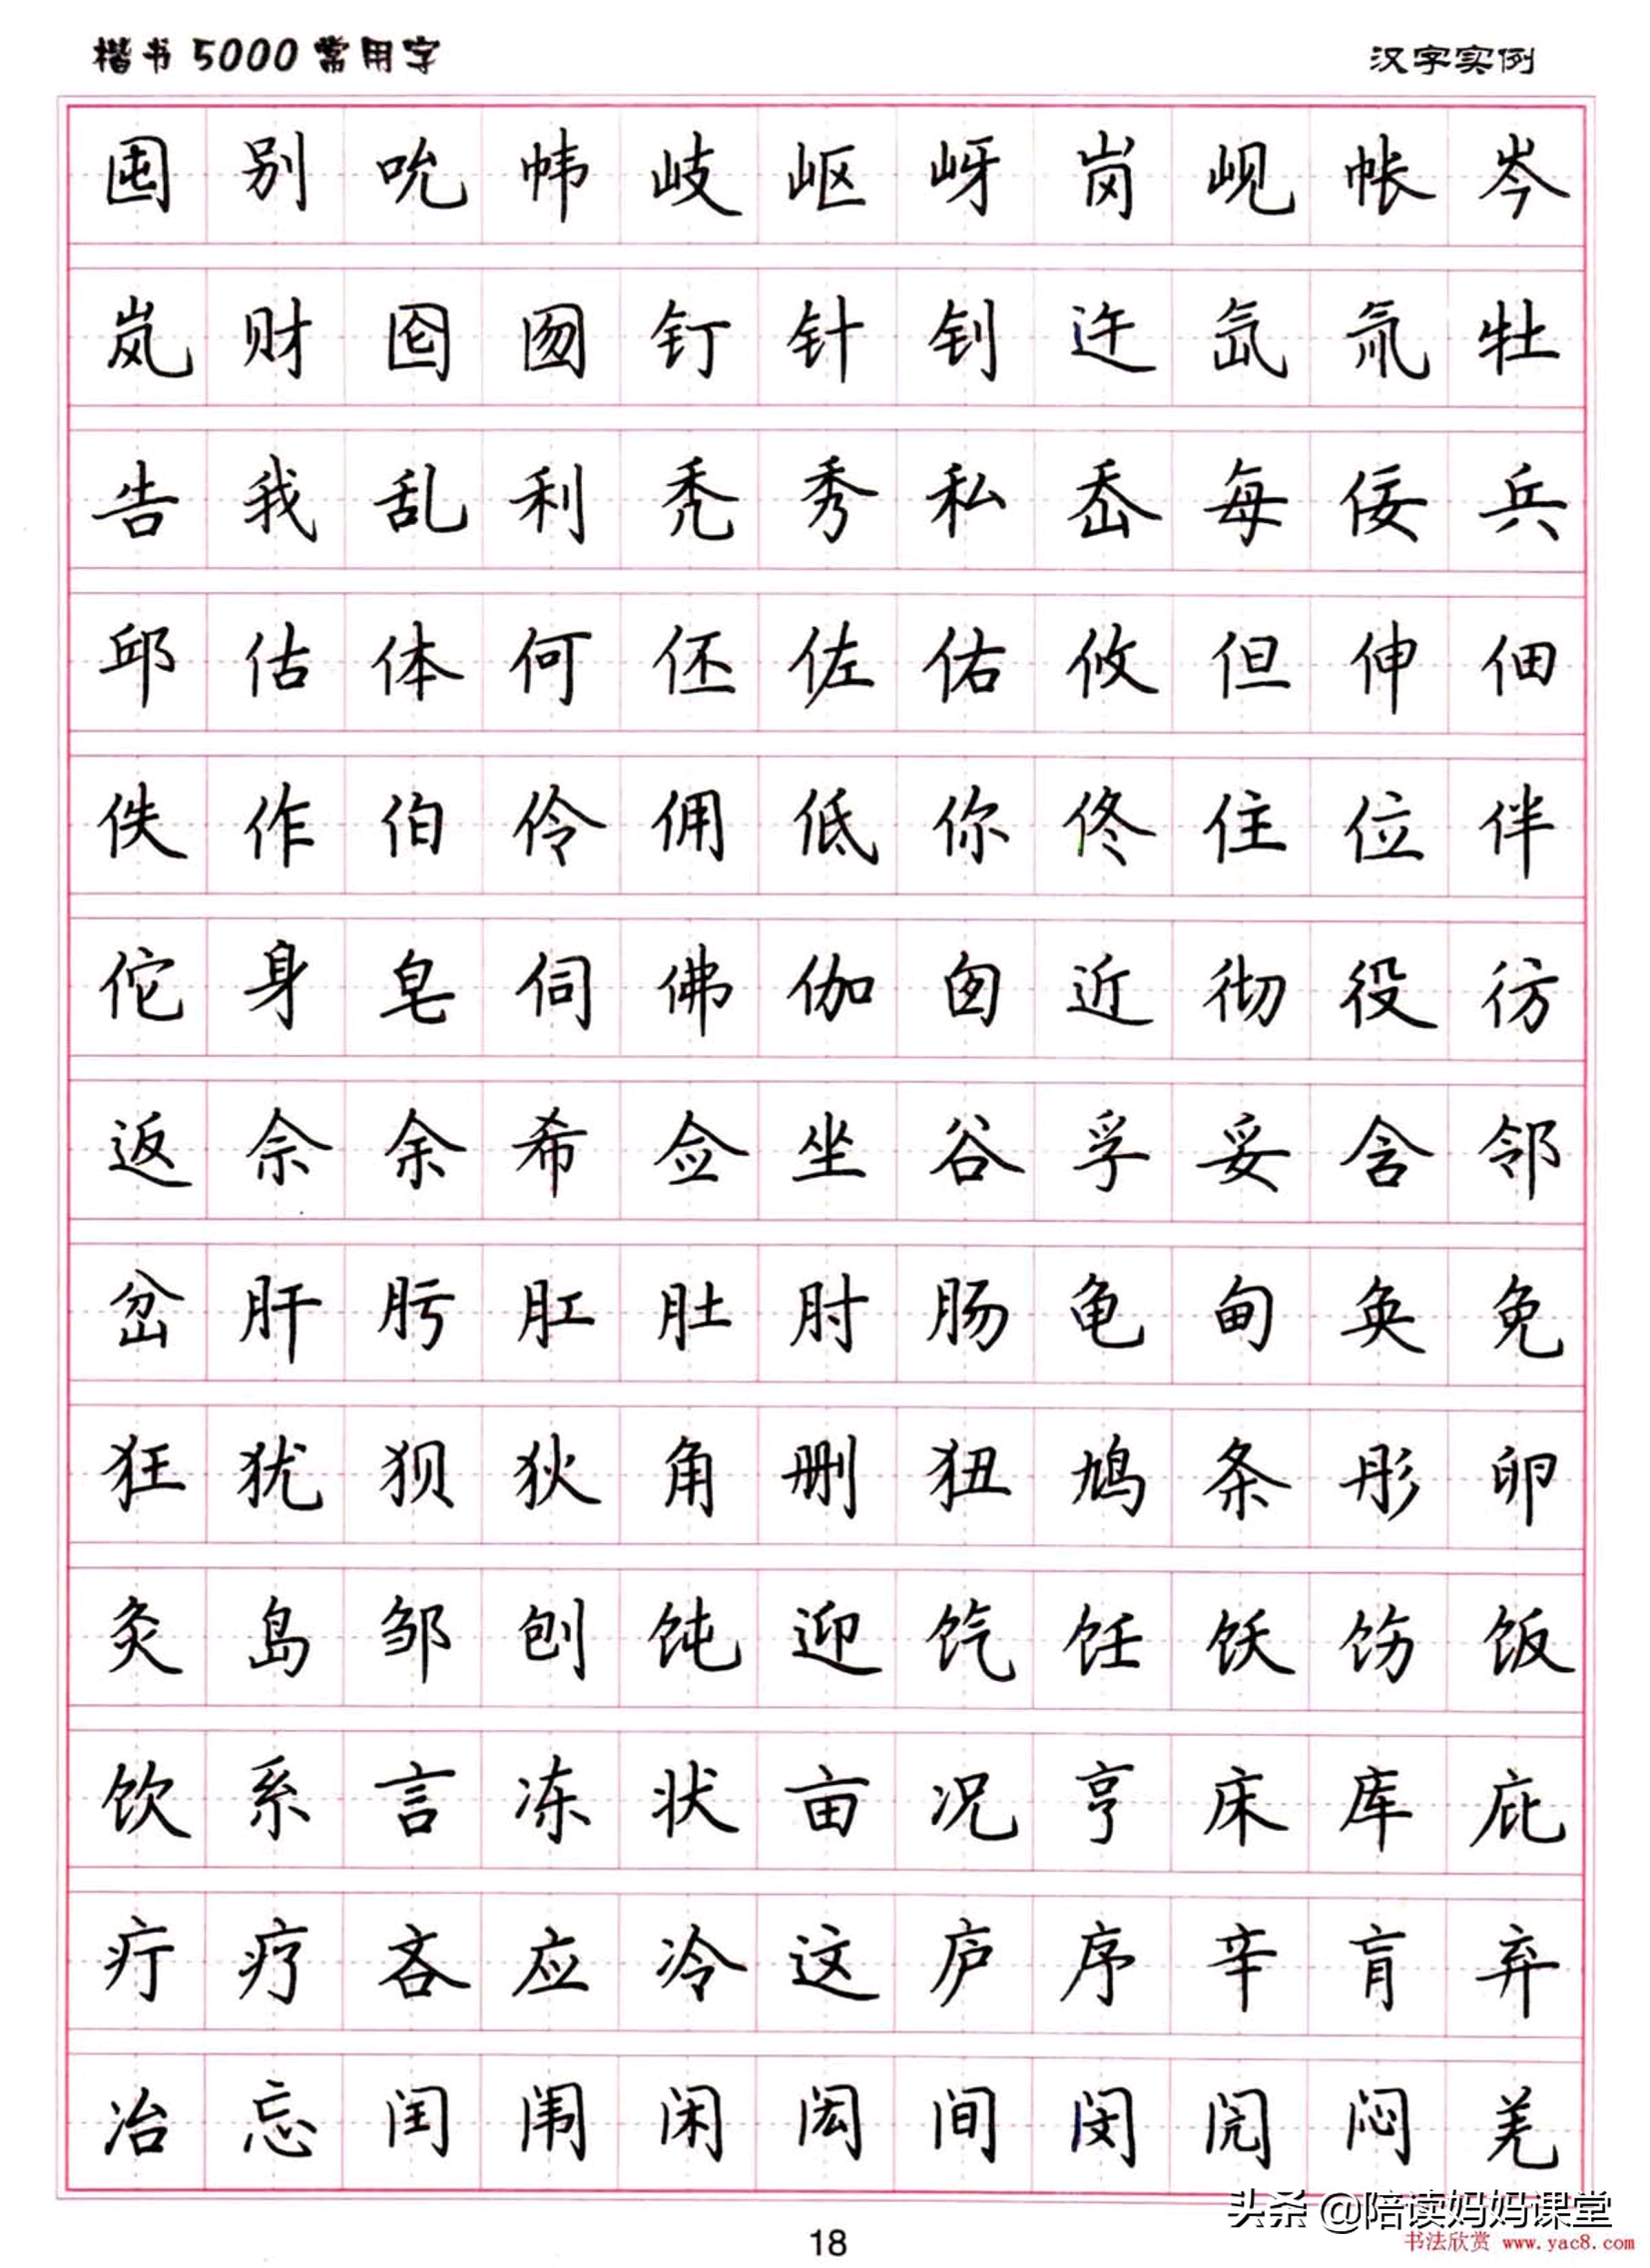 楷书5000常用字 汉字实例
囤 别 吮 帏 岐 岖 岈 岗 岘 帐 岑
岚 财 囵 囫 钉 针 钊 迕 氙 氚 牡
告 我 乱 利 秃 秀 私 岙 每 佞 兵
邱 估 体 何 伾 佐 佑 攸 但 伸 佃
佚 作 伯 伶 佣 低 你 佟 住 位 伴
佗 身 皂 伺 佛 伽 囱 近 彻 役 彷
返 佘 余 希 佥 坐 谷 孚 妥 含 邻
岔 肝 肟 肛 肚 肘 肠 龟 甸 奂 免
狂 犹 狈 狄 角 删 狃 鸠 条 彤 卵
灸 岛 邹 刨 饨 迎 饩 饪 饫 饬 饭
饮 系 言 冻 状 亩 况 亨 床 库 庇
疔 疗 吝 应 冷 这 庐 序 辛 肓 弃
冶 忘 闰 闱 闲 闳 间 闵 闶 闷 羌
头条 @陪读妈妈课堂
18
书法欣赏 www.yac8.com